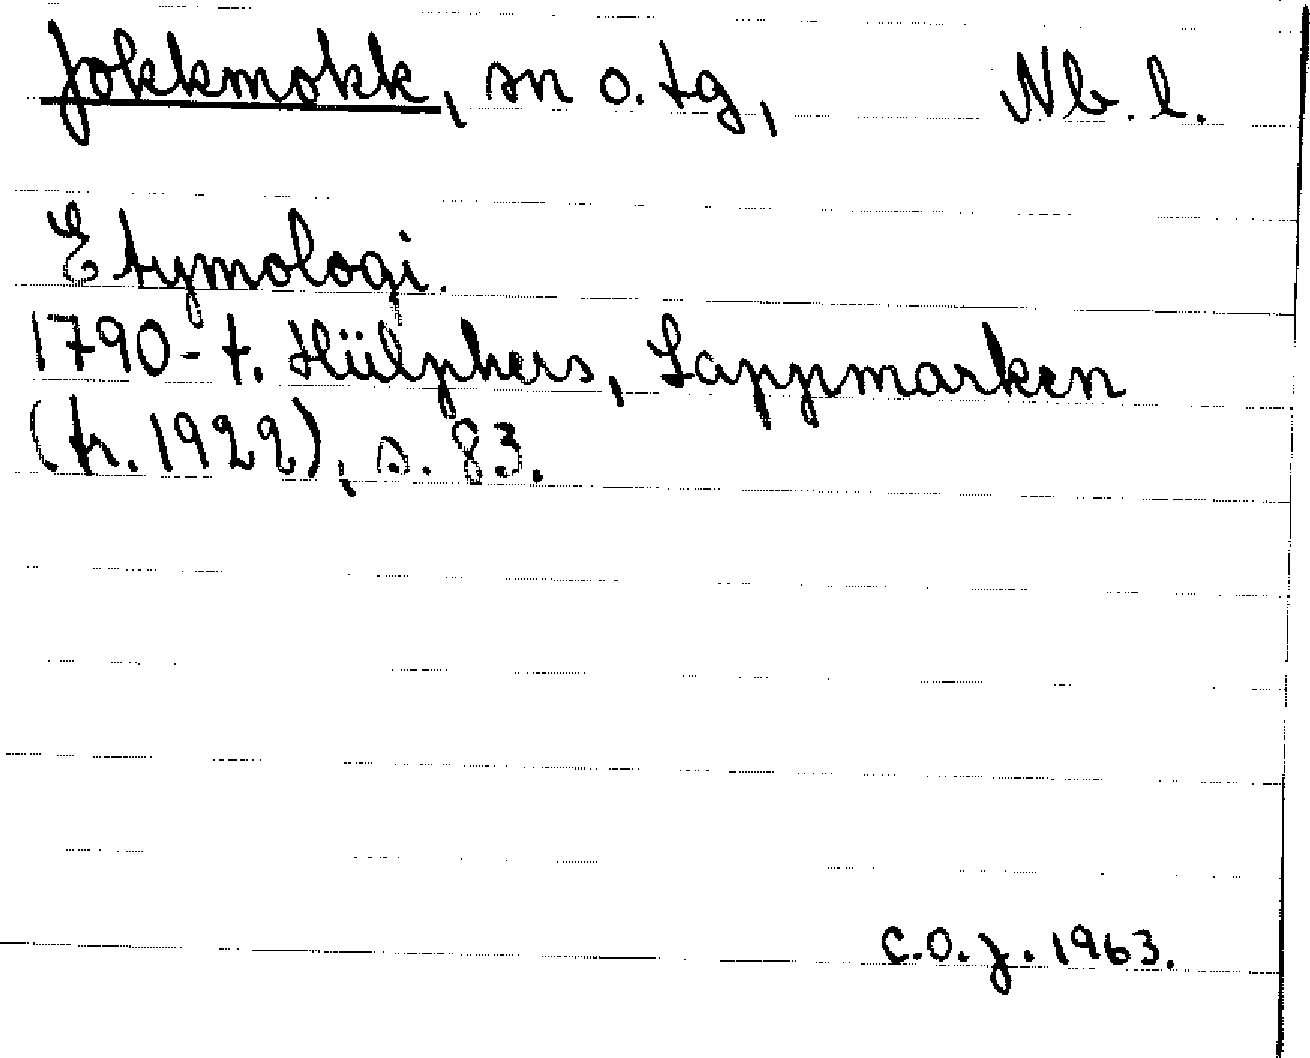 Jokkmokk, sn o. tg, Nb. l.
Etymologi.
1790-t. Hülphers, Lappmarken
(tr. 1922), s. 83.
C.O.J. 1963.